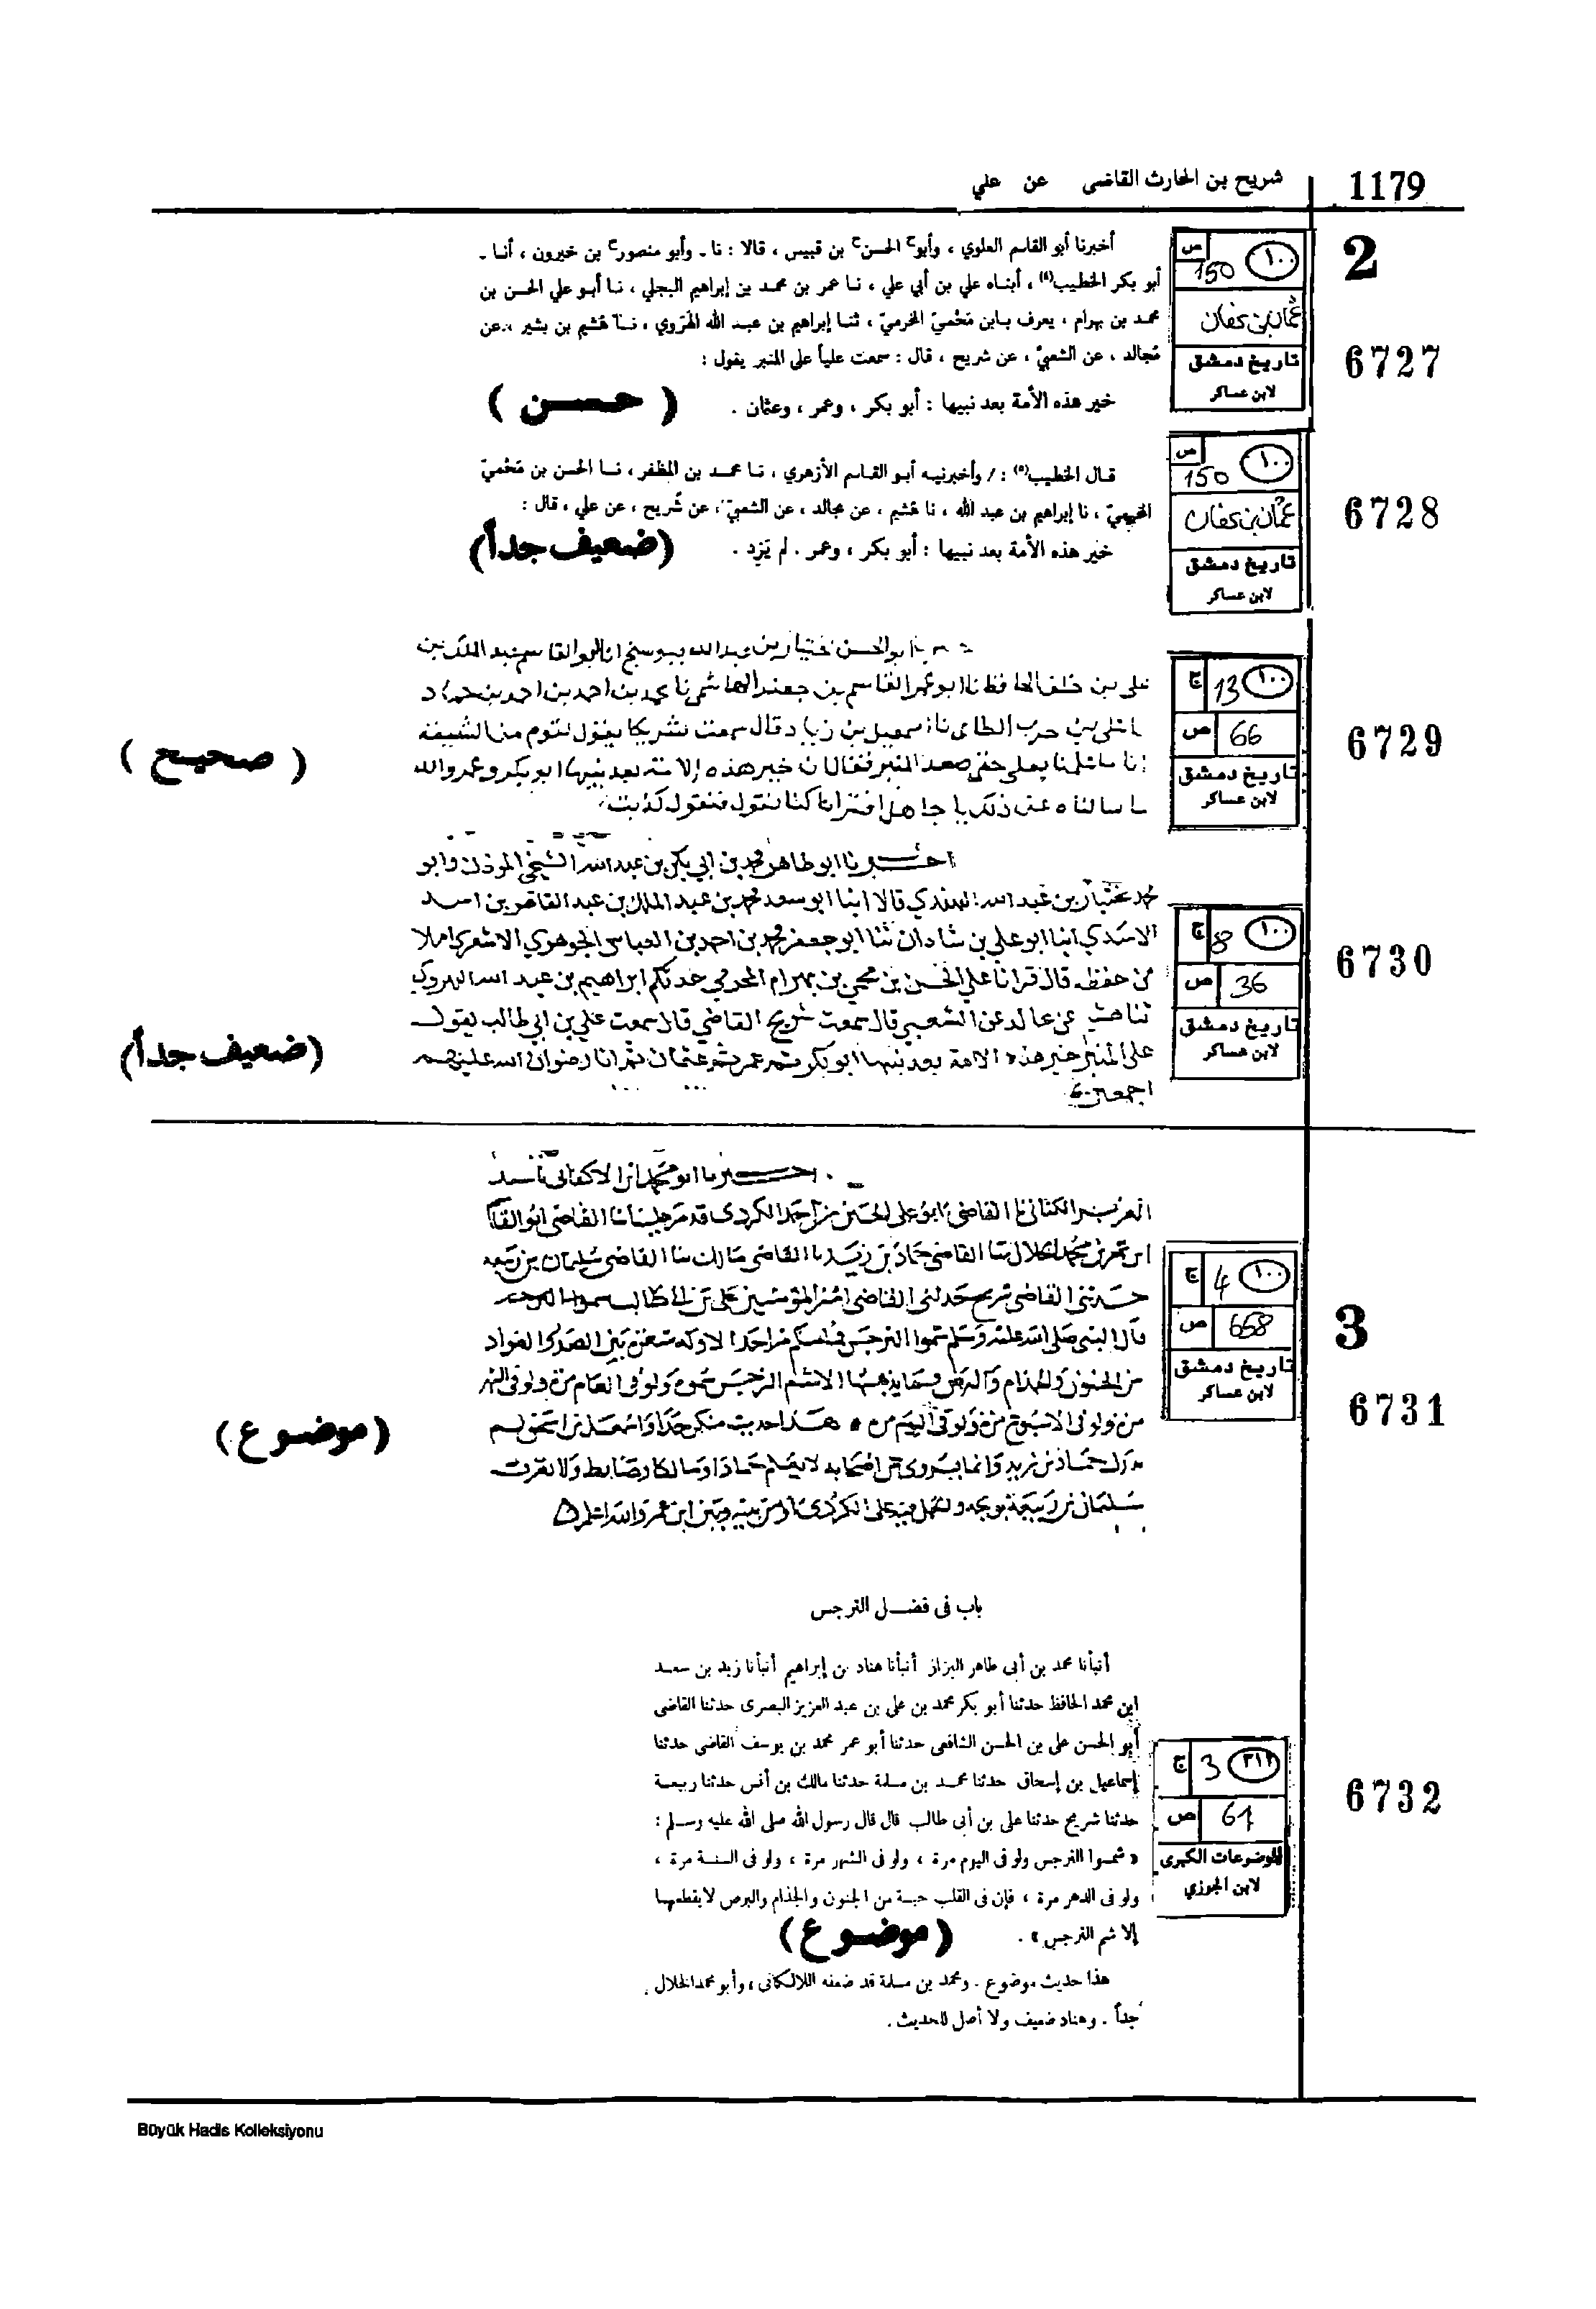 1179
شريح بن الحارث القاضى عن علي
2
أخبرنا أبو القاسم العلوي ، وأبوح الحسنح بن قبيس ، قالا : نا ـ وأبو منصورح بن خيرون ، أنـا ـ
أبو بكر الخطيب(٤) ، أبنـاه علي بن أبي علي ، نـا عمر بن محمد بن إبراهيم البجلي ، نـا أبـو علي الحسن بن
محمـد بن بهرام ، يعرف بـابن مَخْميّ المخرميّ ، ثنـا إبراهيم بن عبـد الله الهَرَوي ، نـا هُشيم بن بشير ، عن
مُجالد ، عن الشعبيّ ، عن شريح ، قال : سمعت علياً على المنبر يقول :
خير هذه الأمة بعد نبيها : أبو بكر ، وعمر ، وعثمان .
( حسن )
ص
150
١٠٠
عثمان بن عفان
تاريخ دمشق
لابن عساكر
6727
قـال الخطيب(٥) : / وأخبرنيـه أبـو القـاسم الأزهري ، نـا محمـد بن المظفر ، نـا الحسن بن مَخْميّ
المخرميّ ، نا إبراهيم بن عبد الله ، نا هُشيم ، عن مجالد ، عن الشعبيّ ، عن شُريح ، عن علي ، قال :
خير هذه الأمة بعد نبيها : أبو بكر ، وعمر . لم يَزِد .
(ضعيف جداً)
ص
150
١٠٠
عثمان بن عفان
تاريخ دمشق
لابن عساكر
6728
علي بن خلف الحافظ نا ابو عمر القاسم بن جعفر الهاشمي نا
حرب الطائي نا اسمعيل بن زياد قال سمعت شريكا يقول لقوم من الشيعة
صعد المنبر فقال ان خير هذه الامة بعد نبيها ابو بكر وعمر والله
ما سالناه عن ذلك يا جاهل افترانا كنا نقول فنقول كذبت
( صحيح )
ج
13
١٠٠
ص
66
تاريخ دمشق
لابن عساكر
6729
اخبرنا ابو طاهر محمد بن ابي بكر بن عبد الله السنجي المؤذن وابو
محمد بختيار بن عبد الله الهندي قالا انبا ابو سعد محمد بن عبد الملك بن عبد القاهر بن اسد
الاسدي انبا ابو علي بن شاذان ثنا ابو جعفر محمد بن احمد بن العباس الجوهري الاشعري املا
من حفظه قال قرانا علي الحسن بن محمي بن بهرام المخرمي حدثكم ابراهيم بن عبد الله الهروي
ثنا هشيم عن مجالد عن الشعبي قال سمعت شريح القاضي قال سمعت علي بن ابي طالب يقول
على المنبر خير هذه الامة بعد نبيها ابو بكر ثم عمر ثم عثمان ثم انا رضوان الله عليهم
اجمعين
(ضعيف جداً)
ج
8
١٠٠
ص
36
تاريخ دمشق
لابن عساكر
6730
3
اخبرنا ابو محمد ابن الاكفاني نا عبد
العزيز الكتاني نا القاضي ابو علي الحسين بن احمد الكردي قدم علينا نا القاضي ابو القاسم
ابن عمر بن محمد الخلال نا القاضي حماد بن زيد نا القاضي مالك نا القاضي سليمان بن ربيعة
حدثني القاضي شريح حدثني القاضي امير المؤمنين علي بن ابي طالب
قال النبي صلى الله عليه وسلم شموا النرجس فما منكم من احد الا وله شعرة بين الصدر والفواد
من الجنون والجذام والبرص فما يذهبها الا شم النرجس شموه ولو في العام مرة ولو في الشهر
مرة ولو في الاسبوع مرة ولو في اليوم مرة هذا حديث منكر جدا واسمعيل بن اسحق لم
يدرك حماد بن زيد وانما يروي عن اصحابه لا يعلم حماد اوسالكا وضابط ولا نعرف
سليمان بن ربيعة بوجه والحمل فيه على الكردي او من بينه وبين ابن عمر والله اعلم
(موضوع)
ج
4
١٠٠
ص
668
تاريخ دمشق
لابن عساكر
6731
باب فى فضـل النرجس
أنبأنا محمد بن أبى طاهر البزاز أنبأنا هناد بن إبراهيم أنبأنا زيد بن سعـد
ابن محمد الحافظ حدثنا أبو بكر محمد بن على بن عبد العزيز البصرى حدثنا القاضى
أبو الحسن على بن الحسن الشافعى حدثنا أبو عمر محمد بن يوسف القاضى حدثنا
إسماعيل بن إسحاق حدثنا محمـد بن مسلمة حدثنا مالك بن أنس حدثنا ربيعـة
حدثنا شريح حدثنا على بن أبى طالب قال قال رسول الله صلى الله عليه وسـلم :
« شمـوا النرجس ولو فى اليوم مرة ، ولو فى الشهر مرة ، ولو فى السـنة مرة ،
ولو فى الدهر مرة ، فإن فى القلب حبـة من الجنون والجذام والبرص لا يقطعهـا
إلا شم النرجس » .
(موضوع)
هذا حديث موضوع . ومحمد بن مسلمة قد ضعفه اللالكائى ، وأبو محمد الخلال .
جداً . وهناد ضعيف ولا أصل للحديث .
ج
3
٣١٢
ص
61
الموضوعات الكبرى
لابن الجوزي
6732
Büyük Hadis Kolleksiyonu